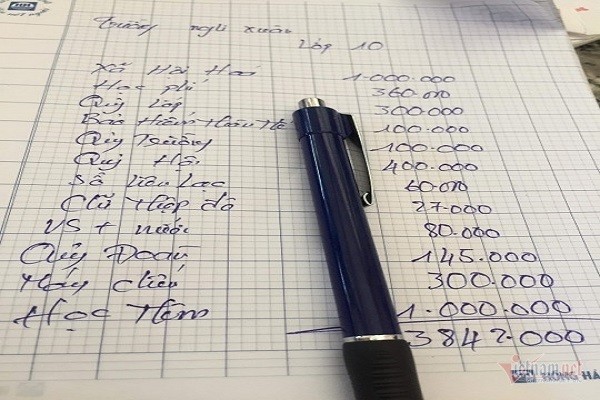 Trường nghi xuân
Lớp 10
Xã Hội Hoá 1.000.000
Học phí 360.000
Quỹ Lớp 300.000
Bảo Hiểm Thân Thể 100.000
Qũy Trường 100.000
Quỹ Hội 400.000
Sổ liên Lạc 60.000
Chữ thập đỏ 27.000
VS + nước 80.000
Qũy Đoàn 145.000
Máy chiếu 300.000
Học thêm 1.000.000
3842.000
vietnamnet
HỒNG HÀ